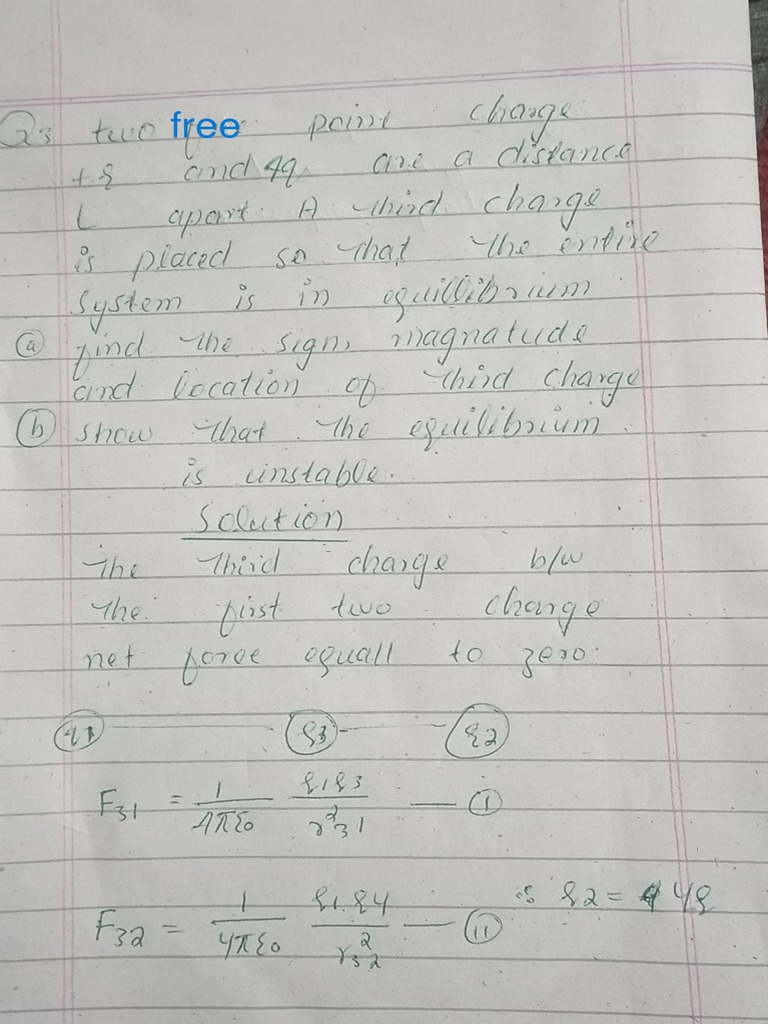 Q3 two free point charge
+q and 4q are a distance
L apart. A third charge
is placed so that the entire
system is in equillibrium
(a) find the sign, magnatude
and location of third charge
(b) show that the equilibrium
is unstable.
Solution
The third charge b/w
the first two charge
net force equall to zero.
q1 q3 q2
F31 = 1/4πε0 q1q3/r²31 — (I)
F32 = 1/4πε0 q1.q4/r32² — (II) ∵ q2 = 4q